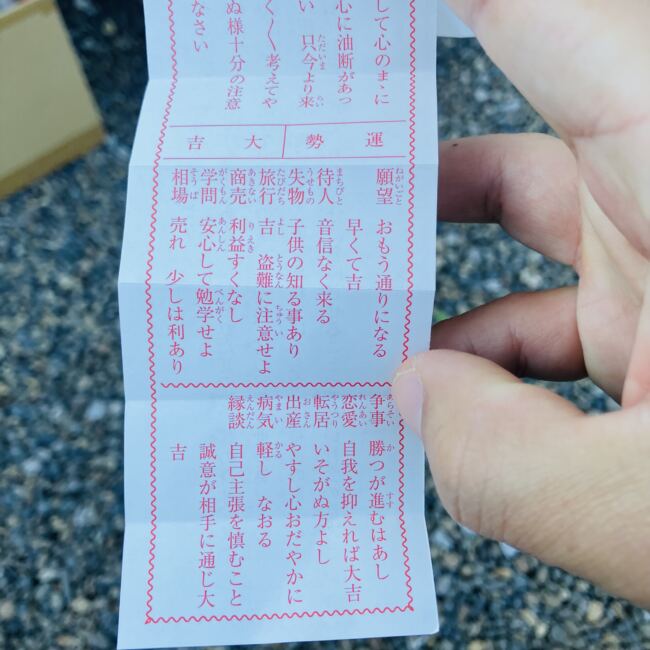 して心のまゝに
心に油断があっ
い 只今より来
く〳〵考えてや
ぬ様十分の注意
なさい
運勢 大吉
願望 おもう通りになる
早くて吉
待人 音信なく来る
失物 子供の知る事あり
旅行 吉 盗難に注意せよ
商売 利益すくなし
学問 安心して勉学せよ
相場 売れ 少しは利あり
争事 勝つが進むはあし
恋愛 自我を抑えれば大吉
転居 いそがぬ方よし
出産 やすし心おだやかに
病気 軽し なおる
縁談 自己主張を慎むこと
誠意が相手に通じ大
吉